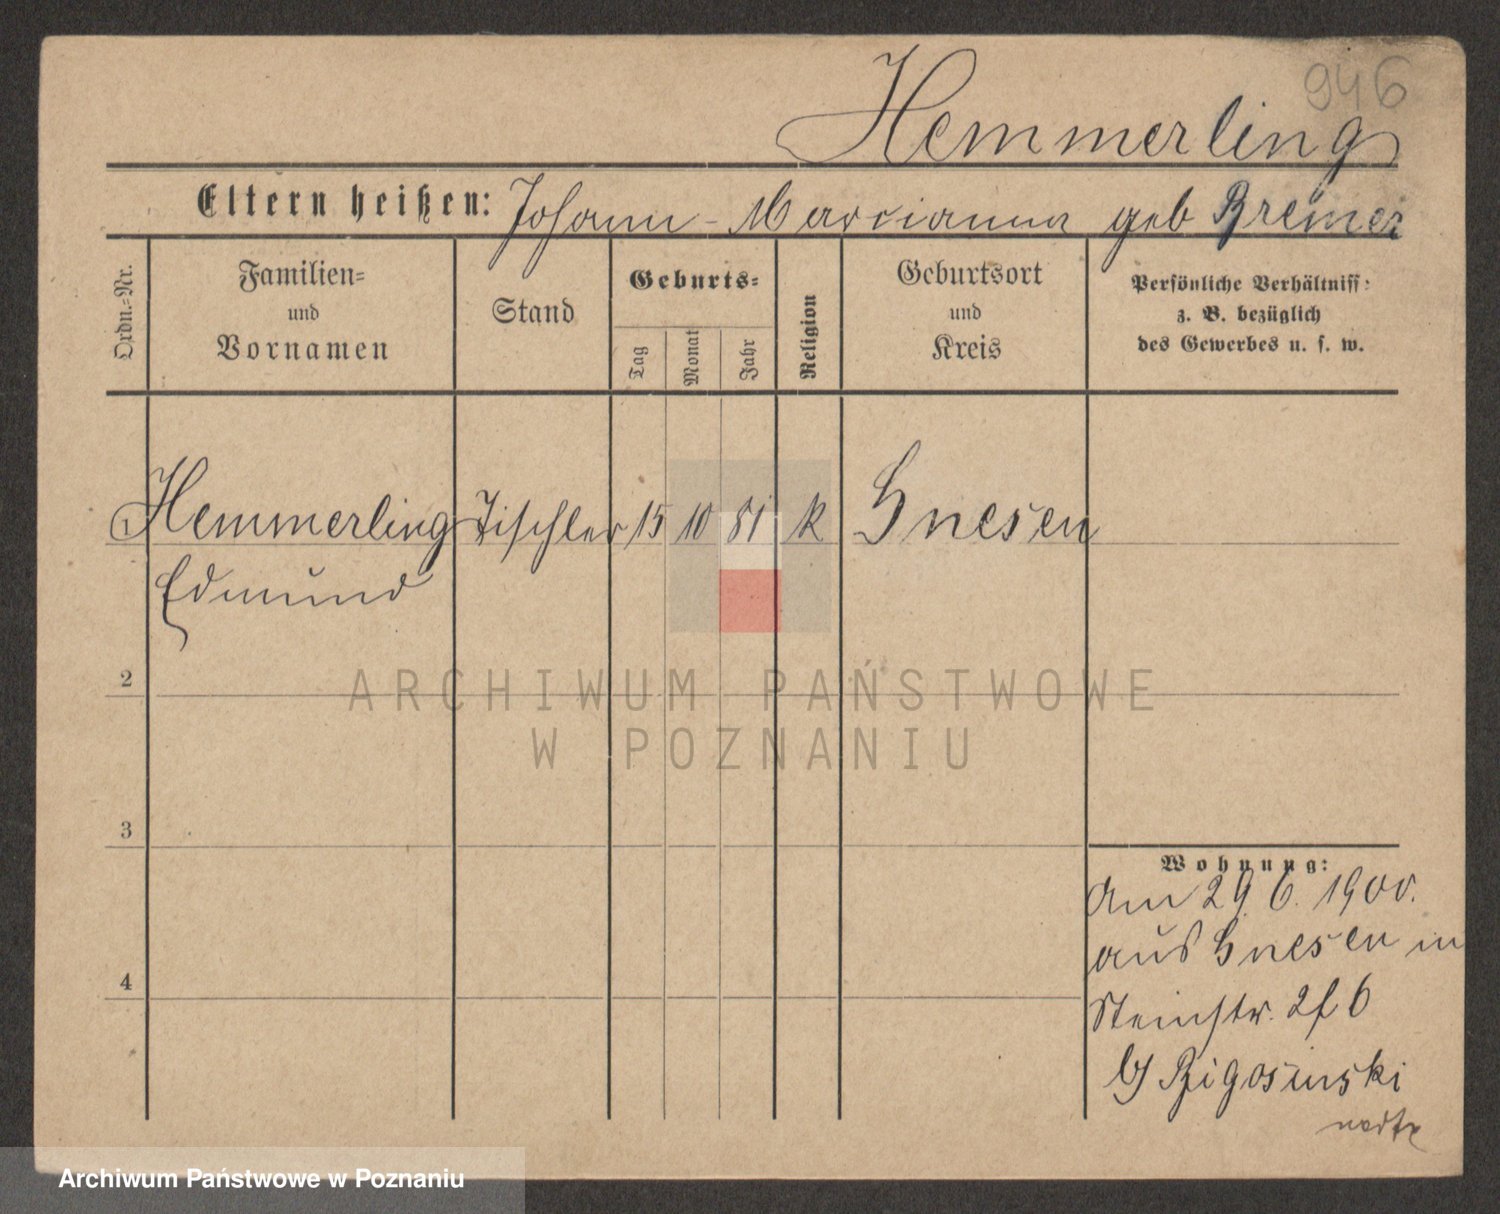 946
Hemmerling
Eltern heißen: Johann - Marcianna geb Bremer
Ordn.=Nr.
Familien=
und
Vornamen
Stand
Geburts=
Tag
Monat
Jahr
Religion
Geburtsort
und
Kreis
Persönliche Verhältniss:
z. B. bezüglich
des Gewerbes u. s. w.
1 Hemmerling Tischler 15 10 81 k Gnesen
Edmund
2
3
4
Wohnung:
Am 29. 6. 1900.
aus Gnesen in
Steinstr. 6
b/
ARCHIWUM PAŃSTWOWE
W POZNANIU
Archiwum Państwowe w Poznaniu